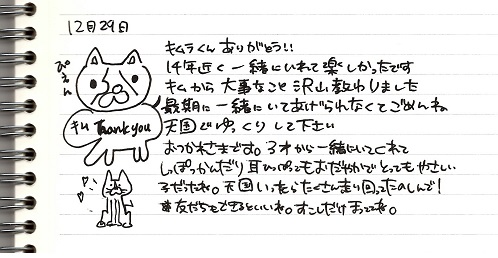 12月29日
ぴえん
キムラくんありがとう!!
14年近く一緒にいれて楽しかったです
キムから大事なこと沢山教わりました
最期に一緒にいてあげられなくてごめんね
天国でゆっくりして下さい
キム Thank you
おつかれさまです。3才から一緒にいてくれて
しっぽつかんだり耳ひっぱってもおだやかでとってもやさしい
子だったね。天国いったらたくさん走り回ってたのしんで!
友だちもできるといいね。すこしだけまっててね。